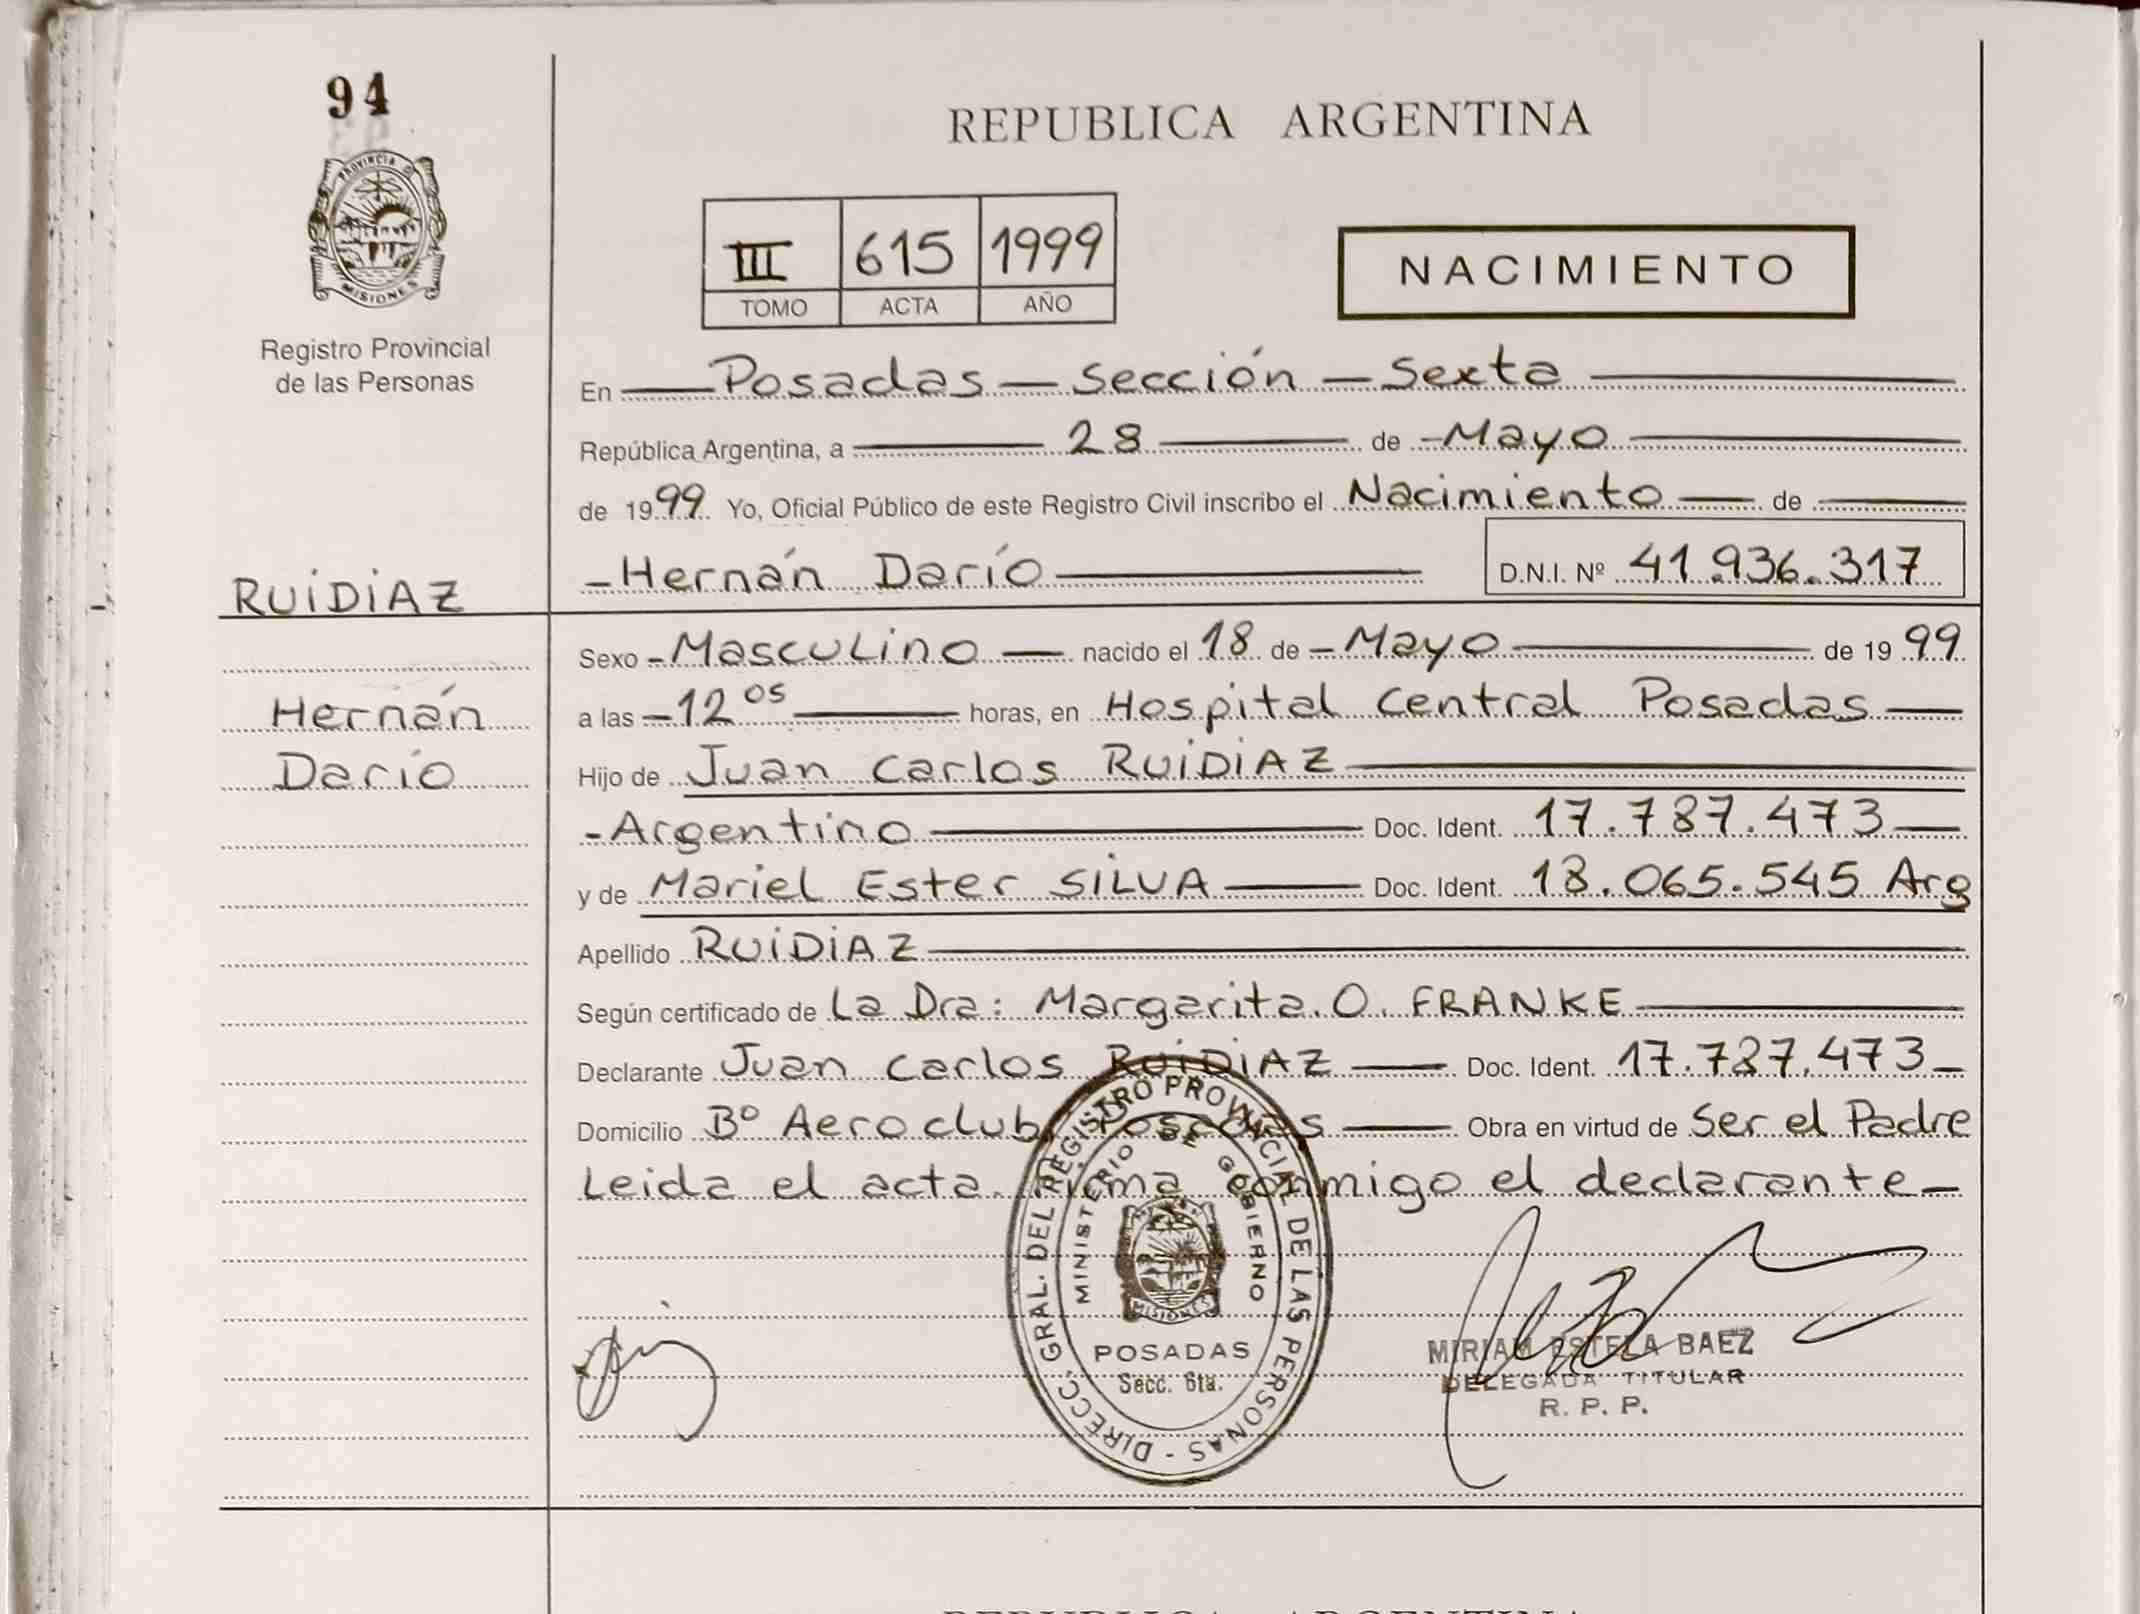 94
PROVINCIA D
MISIONES
Registro Provincial
de las Personas
RUIDIAZ
Hernán
Darío
REPUBLICA ARGENTINA
III 615 1999
TOMO ACTA AÑO
NACIMIENTO
En Posadas - Sección - Sexta
República Argentina, a 28 de Mayo
de 1999 Yo, Oficial Público de este Registro Civil inscribo el Nacimiento de
Hernán Darío D.N.I. Nº 41.936.317
Sexo - Masculino nacido el 18 de - Mayo de 1999
a las - 12 05 horas, en Hospital Central Posadas
Hijo de Juan Carlos RUIDIAZ
- Argentino Doc. Ident. 17.787.473
y de Mariel Ester SILVA Doc. Ident. 18.065.545 Arg
Apellido RUIDIAZ
Según certificado de La Dra: Margarita. O. FRANKE
Declarante Juan Carlos RUIDIAZ Doc. Ident. 17.787.473
Domicilio Bº Aeroclub, Posadas Obra en virtud de Ser el Padre
Leida el acta firma conmigo el declarante
DIRECC. GRAL. DEL REGISTRO PROVINCIAL DE LAS PERSONAS -
MINISTERIO DE GOBIERNO
MISIONES
POSADAS
Secc. 6ta.
MIRIAM ESTELA BAEZ
DELEGADA TITULAR
R. P. P.
REPUBLICA ARGENTINA